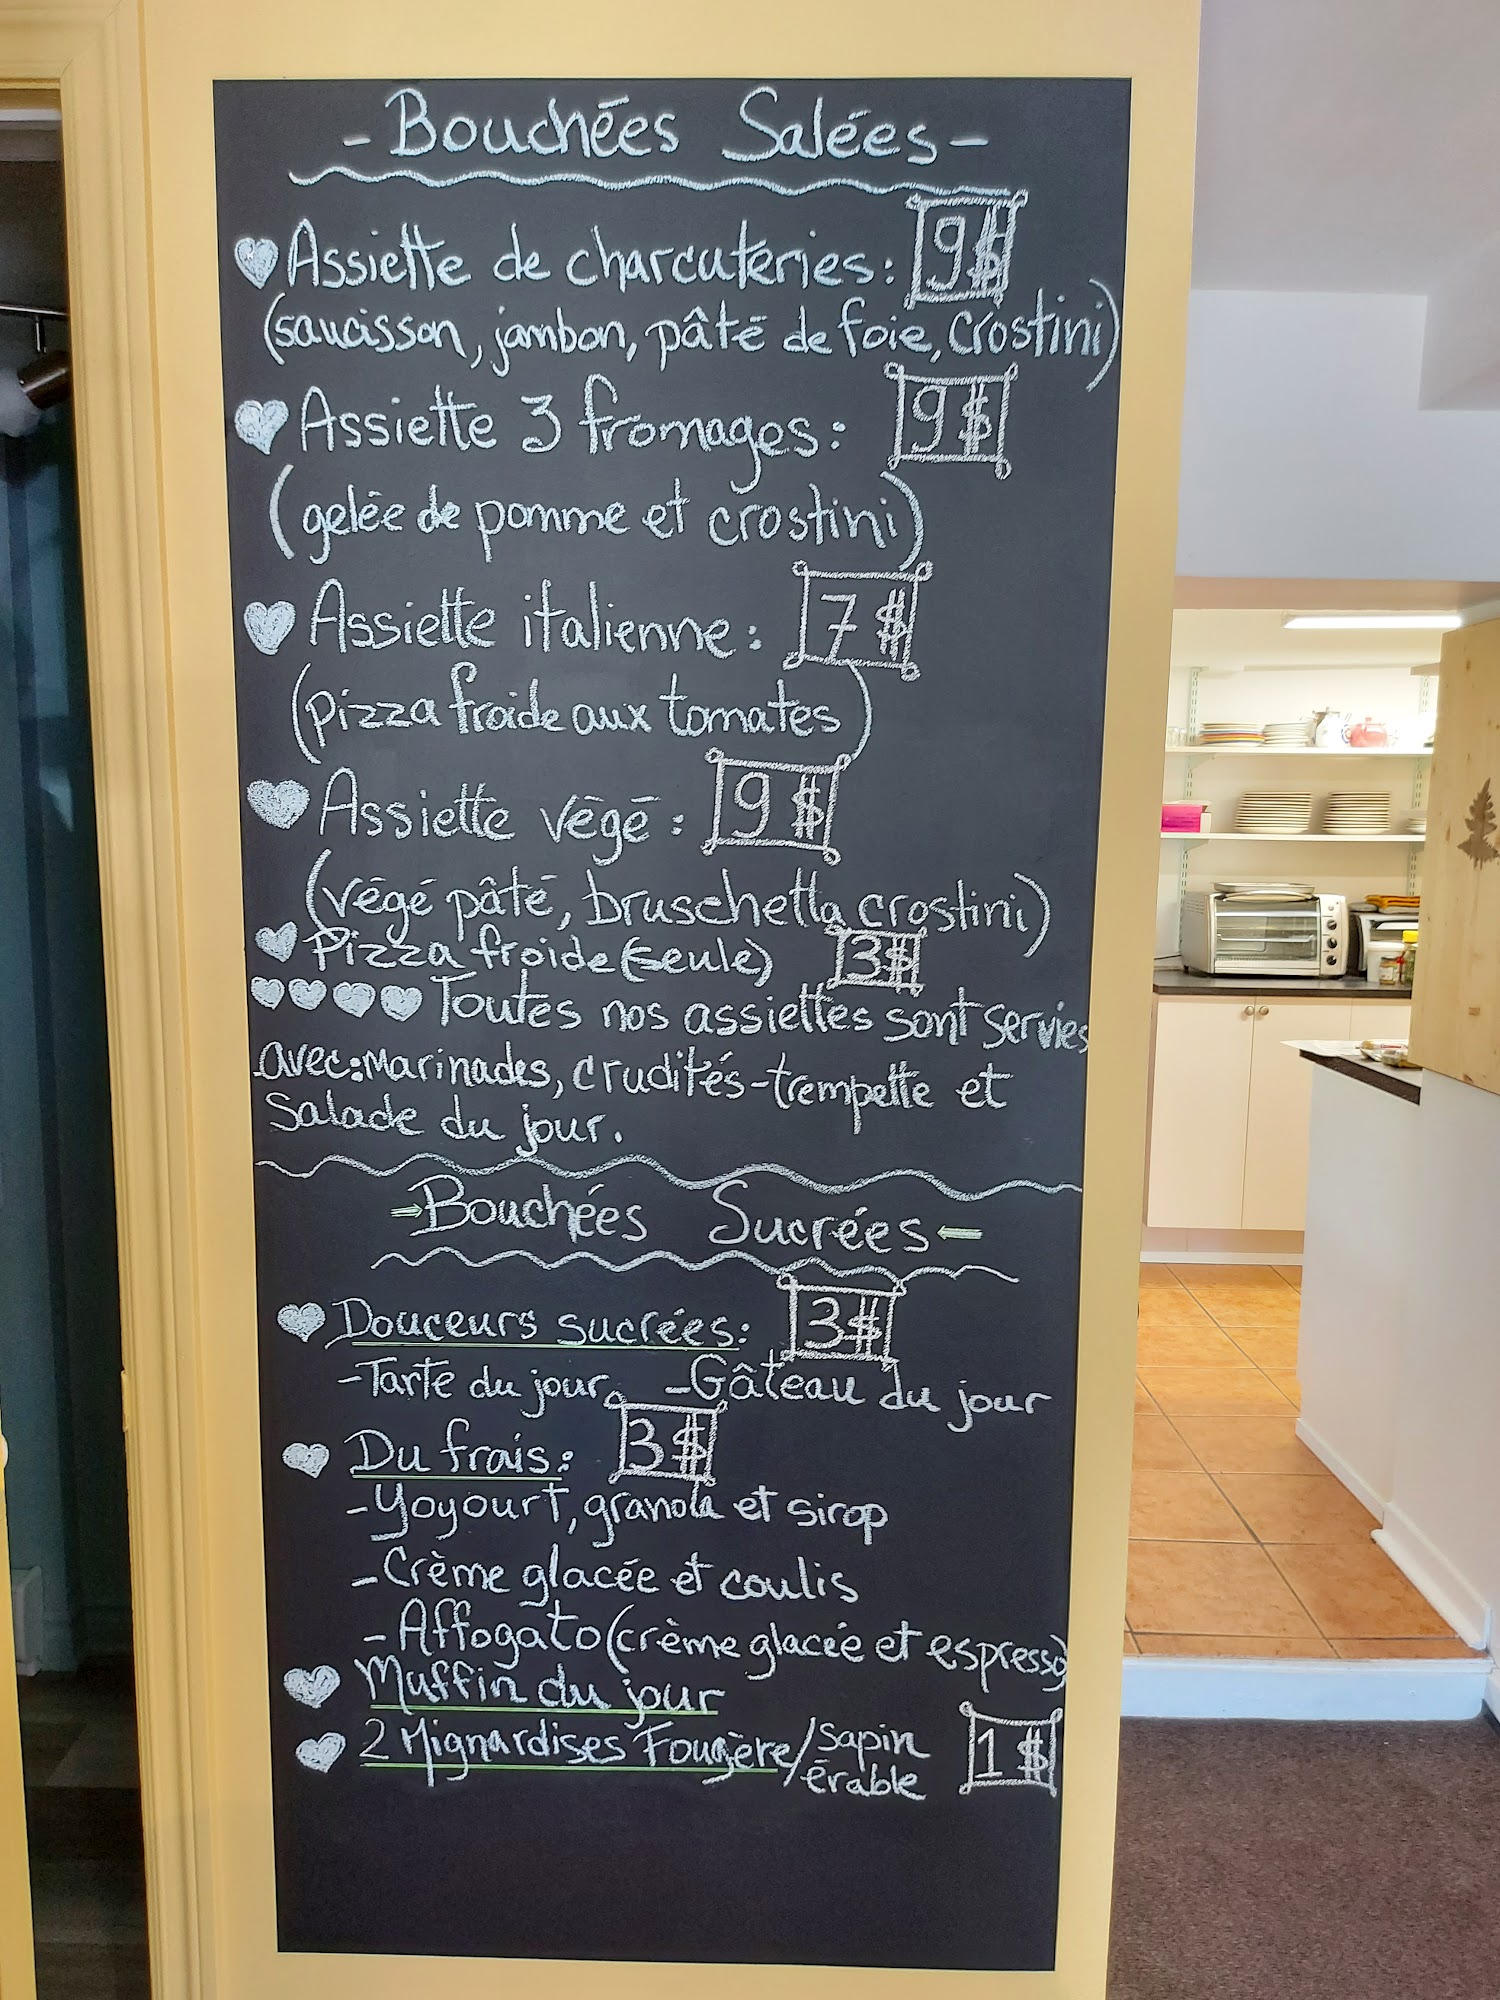 - Bouchées Salées -
Assiette de charcuteries: 9$
(saucisson, jambon, pâté de foie, crostini)
Assiette 3 fromages: 9$
(gelée de pomme et crostini)
Assiette italienne: 7$
(pizza froide aux tomates)
Assiette végé: 9$
(végé pâté, bruschetta, crostini)
Pizza froide (seule) 3$
Toutes nos assiettes sont servies
avec: Marinades, crudités-trempette et
Salade du jour.
Bouchées Sucrées
Douceurs sucrées: 3$
- Tarte du jour - Gâteau du jour
Du frais: 3$
- Yoyourt, granola et sirop
- Crème glacée et coulis
- Affogato (crème glacée et espresso)
Muffin du jour
2 Mignardises Fougère / sapin 1$
érable